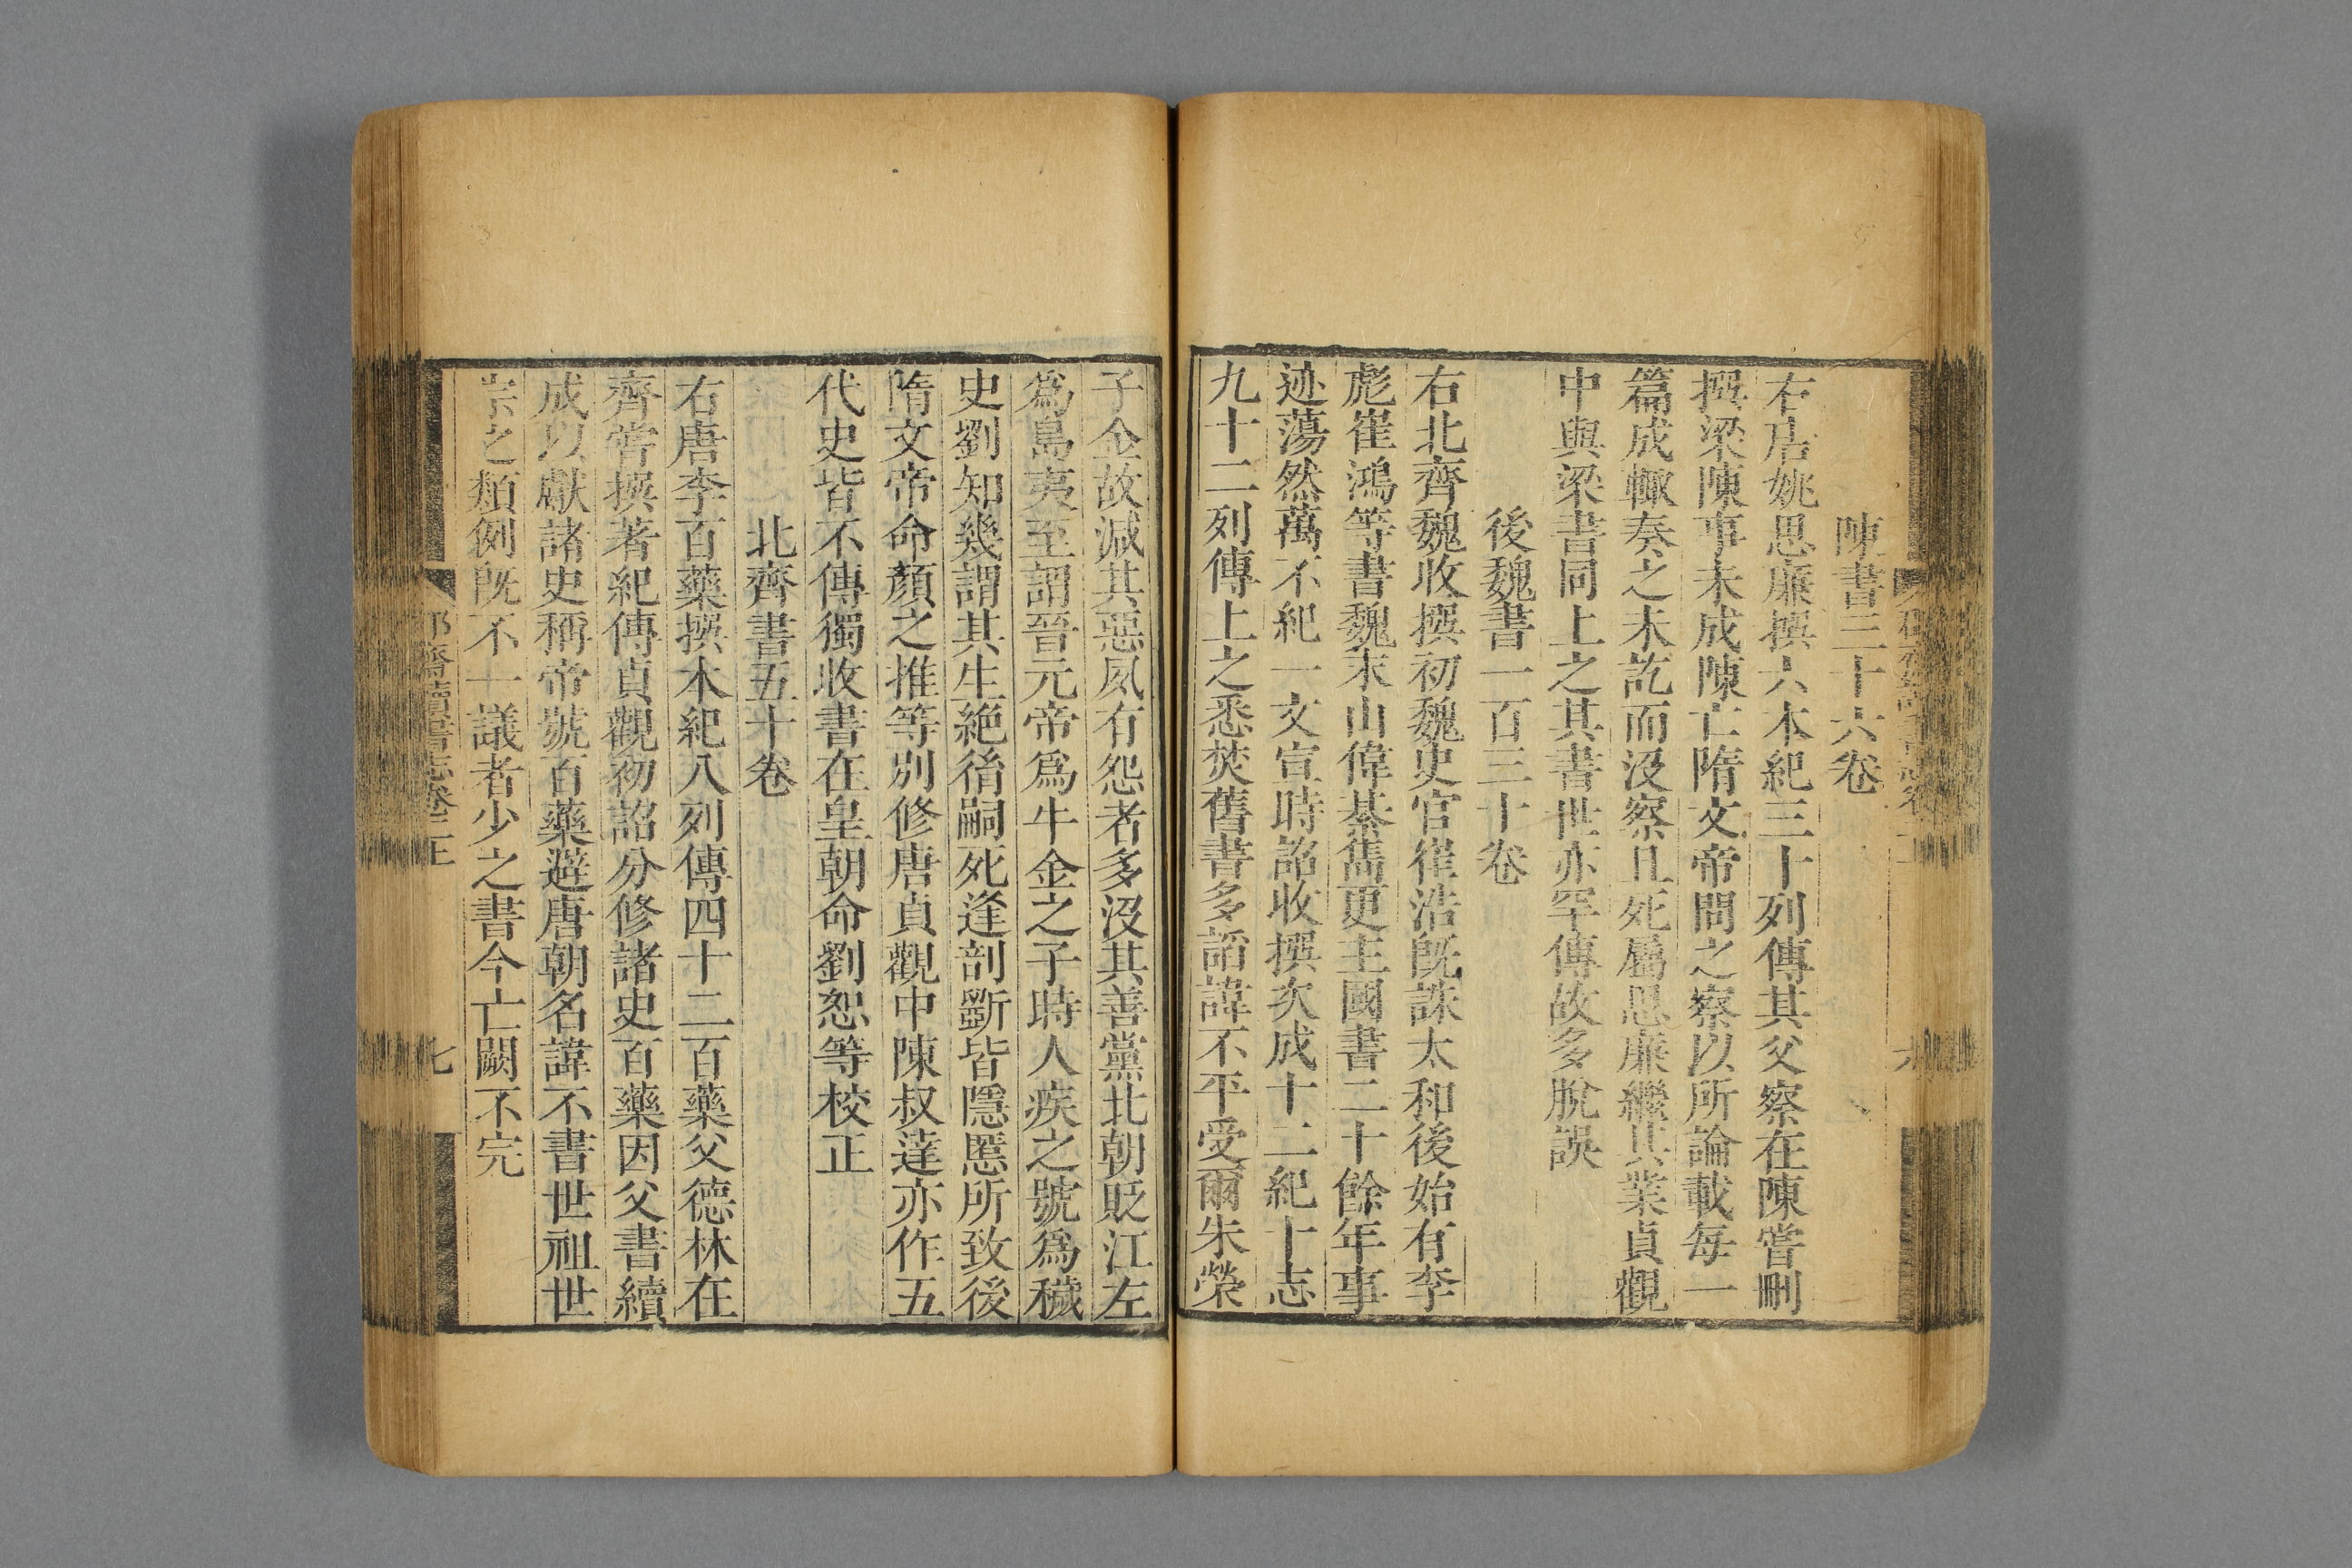 陳書三十六卷
右唐姚思廉撰六本紀三十列傳其父察在陳嘗刪
撰梁陳事未成陳亡隋文帝問之察以所論載每一
篇成輙奏之未訖而沒察且死屬思廉繼其業貞觀
中與梁書同上之其書世亦罕傳故多脫誤
後魏書一百三十卷
右北齊魏收撰初魏史官崔浩旣誅太和後始有李
彪崔鴻等書魏末山偉綦儁更主國書二十餘年事
迹蕩然萬不紀一文宣時詔收撰次成十二紀十志
九十二列傳上之悉焚舊書多謟諱不平受爾朱榮
子金故減其惡夙有怨者多沒其善黨北朝貶江左
爲島夷至謂晉元帝爲牛金之子時人疾之號爲穢
史劉知幾謂其生絕徜嗣死逢剖斷皆隱慝所致後
隋文帝命顏之推等別修唐貞觀中陳叔達亦作五
代史皆不傳獨收書在皇朝命劉恕等校正
北齊書五十卷
右唐李百藥撰本紀八列傳四十二百藥父德林在
齊嘗撰著紀傳貞觀初詔分修諸史百藥因父書續
成以獻諸史稱帝號百藥避唐朝名諱不書世祖世
宗之類例旣不一議者少之書今亡闕不完
郡齋讀書志卷二上
七